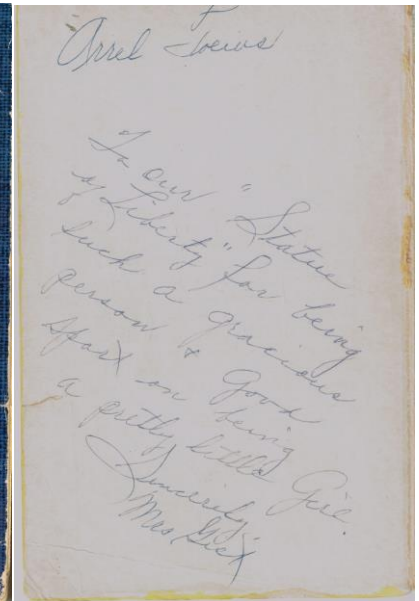 Arrel Toews
To our "Statue
of Liberty" for being
such a gracious
person & Good
sport on being
a pretty little Girl.
Sincerely,
Mrs